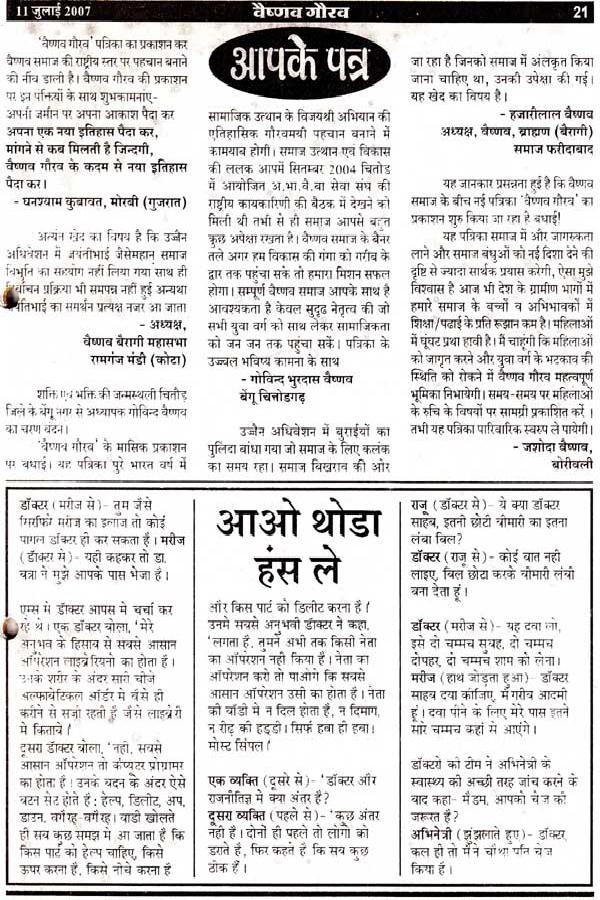 11 जुलाई 2007
वैष्णव गौरव
21
'वैष्णव गौरव' पत्रिका का प्रकाशन कर
वैष्णव समाज की राष्ट्रीय स्तर पर पहचान बनाने
की नींव डाली है। वैष्णव गौरव की प्रकाशन
पर इन पंक्तियों के साथ शुभकामनाएं-
अपनी जमीन पर अपना आकाश पैदा कर
अपना एक नया इतिहास पैदा कर,
मांगने से कब मिलती है जिन्दगी,
वैष्णव गौरव के कदम से नया इतिहास
पैदा कर।
- घनश्याम कुबावत, मोरबी (गुजरात)
अत्यंत खेद का विषय है कि उज्जैन
अधिवेशन में जयंतीभाई जैसेमहान समाज
विभूति का सहयोग नहीं लिया गया साथ ही
निर्वाचन प्रक्रिया भी सम्पन्न नहीं हुई अन्यथा
जयंतिभाई का समर्थन प्रत्यक्ष नजर आ जाता
- अध्यक्ष,
वैष्णव बैरागी महासभा
रामगंज मंडी (कोटा)
शक्ति एवं भक्ति की जन्मस्थली चितौड़
जिले के बेंगू नगर से अध्यापक गोविन्द वैष्णव
का चरण वंदन।
'वैष्णव गौरव' के मासिक प्रकाशन
पर बधाई। यह पत्रिका पुरे भारत वर्ष में
आपके पत्र
सामाजिक उत्थान के विजयश्री अभियान की
एतिहासिक गौरवमयी पहचान बनाने में
कामयाब होगी। समाज उत्थान एवं विकास
की ललक आपमें सितम्बर 2004 चितोड़
में आयोजित अ.भा.वै.बा सेवा संघ की
राष्ट्रीय कायकारिणी की बैठक में देखने को
मिली थी तभी से ही समाज आपसे बहुत
कुछ अपेक्षा रखता है। वैष्णव समाज के बैनर
तले अगर हम विकास की गंगा को गरीब के
द्वार तक पहुंचा सकें तो हमारा मिशन सफल
होगा। सम्पूर्ण वैष्णव समाज आपके साथ है
आवश्यकता है केवल सुदृढ नेतृत्व की जो
सभी युवा वर्ग को साथ लेकर सामाजिकता
को जन जन तक पहुंचा सकें। पत्रिका के
उज्ज्वल भविष्य कामना के साथ
- गोविन्द भुरदास वैष्णव
बेंगू चित्तोडगढ़
उज्जैन अधिवेशन में बुराईयों का
पुलिंदा बांधा गया जो समाज के लिए कलंक
का समय रहा। समाज बिखराव की और
जा रहा है जिनको समाज में अलंकृत किया
जाना चाहिए था, उनकी उपेक्षा की गई।
यह खेद का विषय है।
- हजारीलाल वैष्णव
अध्यक्ष, वैष्णव, ब्राह्मण (बैरागी)
समाज फरीदाबाद
यह जानकार प्रसन्नता हुई है कि वैष्णव
समाज के बीच नई पत्रिका 'वैष्णव गौरव' का
प्रकाशन शुरु किया जा रहा है बधाई!
यह पत्रिका समाज में और जागरुकता
लाने और समाज बंधुओं को नई दिशा देने की
दृष्टि से ज्यादा सार्थक प्रयास करेगी, ऐसा मुझे
विश्वास है आज भी देश के ग्रामीण भागों में
हमारे समाज के बच्चों व अभिभावकों में
शिक्षा/पढाई के प्रति रूझान कम है। महिलाओं
में घूंघट प्रथा हावी है। मैं चाहूंगी कि महिलाओं
को जागृत करने और युवा वर्ग के भटकाव की
स्थिति को रोकने में वैष्णव गौरव महत्वपूर्ण
भूमिका निभायेगी। समय-समय पर महिलाओं
के रुचि के विषयों पर सामग्री प्रकाशित करें ।
तभी यह पत्रिका पारिवारिक स्वरुप ले पायेगी।
- जशोदा वैष्णव,
बोरीवली
डॉक्टर (मरीज से)- तुम जैसे
सिरफिरे मरीज का इलाज तो कोई
पागल डॉक्टर ही कर सकता है। मरीज
(डॉक्टर से)- यही कहकर तो डा.
बत्रा ने मुझे आपके पास भेजा है।
एम्स में डॉक्टर आपस में चर्चा कर
रहे थे। एक डॉक्टर बोला, 'मेरे
अनुभव के हिसाब से सबसे आसान
ऑपरेशन लाइब्रेरियनों का होता है।
उनके शरीर के अंदर सारी चीजें
अल्फाबेटिकल ऑर्डर में वैसे ही
करीने से सजी रहती हैं जैसे लाइब्रेरी
में किताबें।'
दूसरा डॉक्टर बोला, 'नहीं, सबसे
आसान ऑपरेशन तो कंप्यूटर प्रोग्रामर
का होता है। उनके बदन के अंदर ऐसे
बटन सेट होते हैं : हेल्प, डिलीट, अप,
डाउन, वगैरह-वगैरह। बाडी खोलते
ही सब कुछ समझ में आ जाता है कि
किस पार्ट को हेल्प चाहिए, किसे
ऊपर करना है, किसे नीचे करना है
आओ थोडा
हंस ले
और किस पार्ट को डिलीट करना है।'
उनमें सबसे अनुभवी डॉक्टर ने कहा,
'लगता है, तुमने अभी तक किसी नेता
का ऑपरेशन नहीं किया है। नेता का
ऑपरेशन करो तो पाओगे कि सबसे
आसान ऑपरेशन उसी का होता है। नेता
की बॉडी में न दिल होता है, न दिमाग,
न रीढ़ की हड्डी। सिर्फ हवा ही हवा।
मोस्ट सिंपल।'
एक व्यक्ति (दूसरे से)- 'डॉक्टर और
राजनीतिज्ञ में क्या अंतर है?
दूसरा व्यक्ति (पहले से)- 'कुछ अंतर
नहीं है। दोनों ही पहले तो लोगों को
डराते है, फिर कहते हैं कि सब कुछ
ठीक हैं।
राजू (डॉक्टर से)- ये क्या डॉक्टर
साहब, इतनी छोटी बीमारी का इतना
लंबा बिल?
डॉक्टर (राजू से)- कोई बात नहीं
लाइए, बिल छोटा करके बीमारी लंबी
बना देता हूं।
डॉक्टर (मरीज से)- यह दवा लो,
इसे दो चम्मच सुबह, दो चम्मच
दोपहर, दो चम्मच शाम को लेना।
मरीज (हाथ जोड़ता हुआ)- डॉक्टर
साहब दया कीजिए, मैं गरीब आदमी
हूं। दवा पीने के लिए मेरे पास इतने
सारे चम्मच कहां से आएंगे।
डॉक्टरों की टीम ने अभिनेत्री के
स्वास्थ्य की अच्छी तरह जांच करने के
बाद कहा- मैडम, आपको चेंज की
जरूरत है?
अभिनेत्री (झुंझलाते हुए)- डॉक्टर,
कल ही तो मैंने चौथा पति चेंज
किया है।